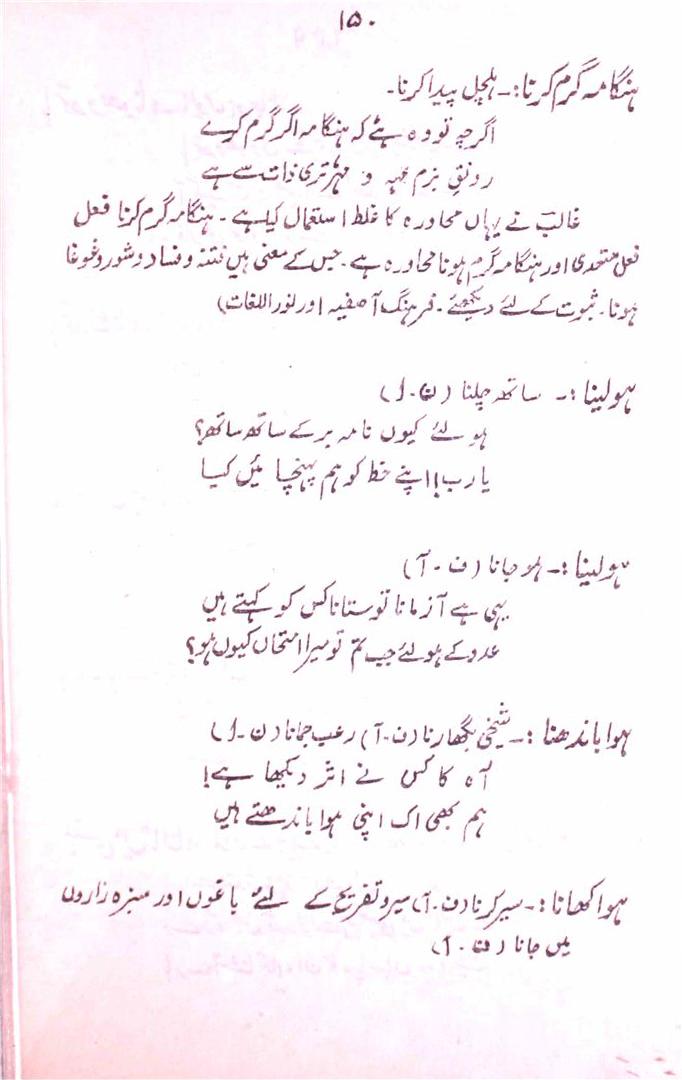 ۱۵۰
ہنگامہ گرم کرنا:۔ ہلچل پیدا کرنا۔
اگرچہ تو وہ ہے کہ ہنگامہ اگر گرم کرے
رونقِ بزم مہہ و مہر تری ذات سے ہے
غالبؔ نے یہاں محاورہ کا غلط استعمال کیا ہے۔ ہنگامہ گرم کرنا فعل
فعل متعدی اور ہنگامہ گرم ہونا محاورہ ہے۔ جس کے معنی ہیں فتنہ و فساد و شور و غوغا
ہونا۔ ثبوت کے لئے دیکھئے۔ فرہنگ آصفیہ اور نور اللغات)
ہولینا:۔ ساتھ چلنا (ن۔ل)
ہو لئے کیوں نامہ بر کے ساتھ ساتھ؟
یا رب! اپنے خط کو ہم پہنچائیں کیا
ہولینا:۔ ہو جانا (ف۔آ)
یہی ہے آزمانا تو ستانا کس کو کہتے ہیں
عدو کے ہو لئے جب تم تو میرا امتحاں کیوں ہو؟
ہوا باندھنا:۔ شیخی بگھارنا (ف۔آ) رعب جمانا (ن۔ل)
آہ کا کس نے اثر دیکھا ہے!
ہم بھی اک اپنی ہوا باندھتے ہیں
ہوا کھانا:۔ سیر کرنا (ف۔آ) سیر و تفریح کے لئے باغوں اور سبزہ زاروں
میں جانا (ف۔آ)